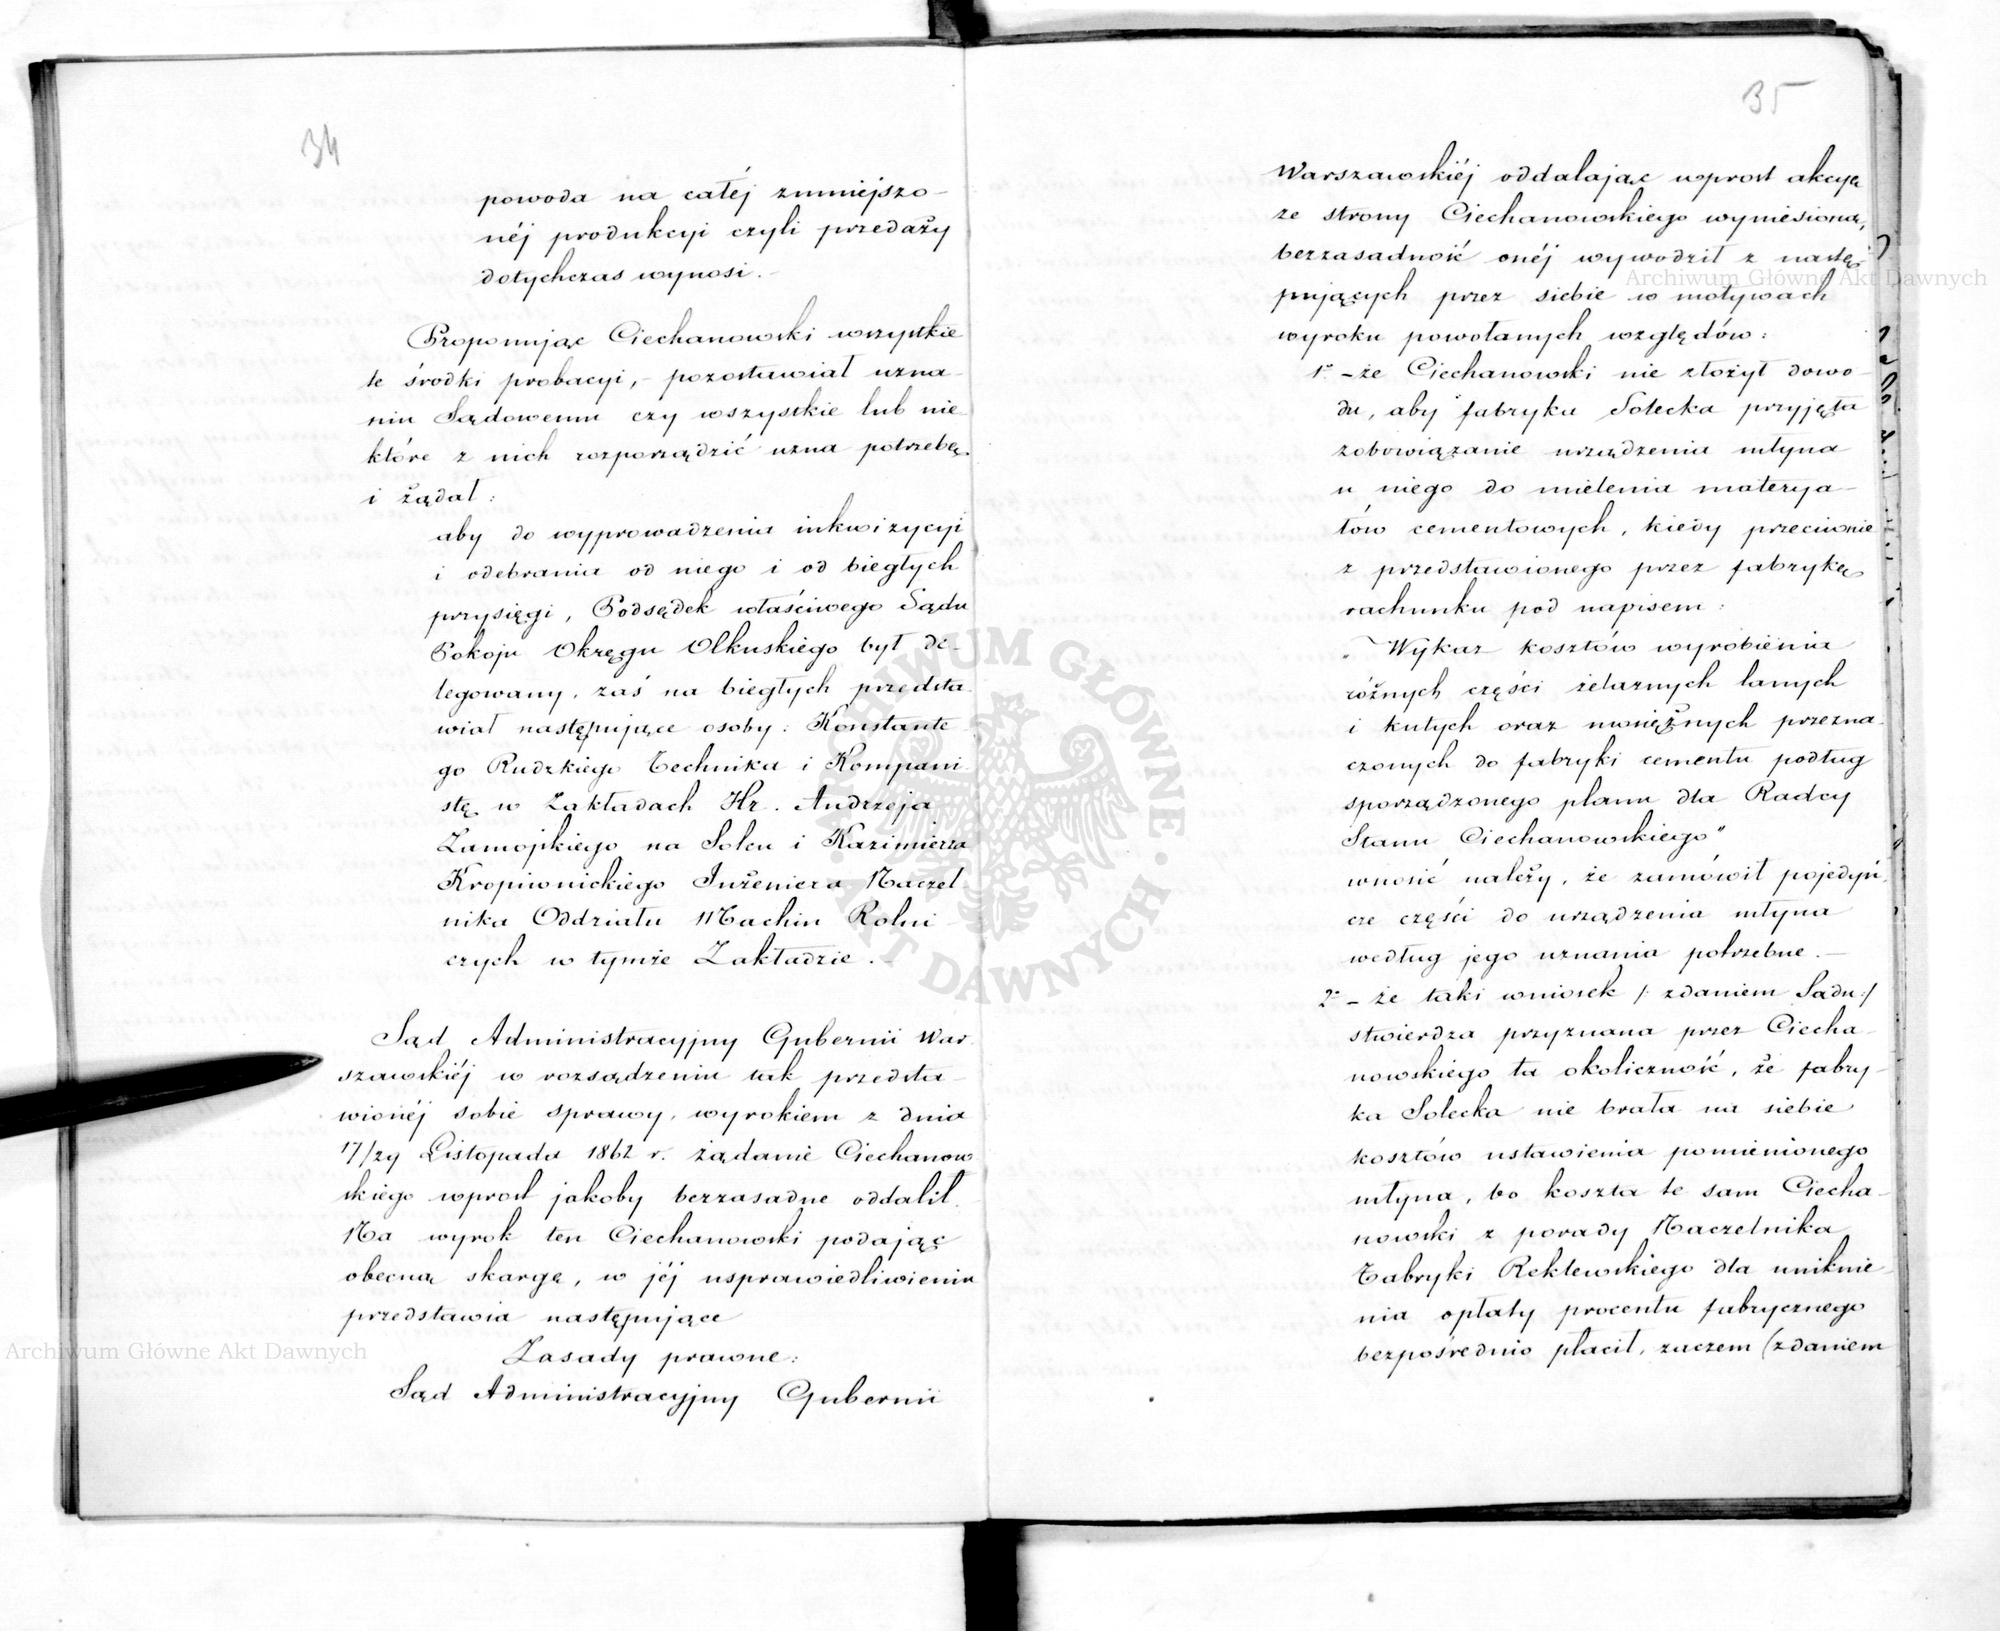 34
powoda na całéj zmniejszo-
néj produkcyi czyli przedaży
dotychczas wynosi.-
Proponując Ciechanowski wszystkie
te środki probacyi,- pozostawiał uzna-
niu Sądowemu czy wszystkie lub nie-
które z nich rozporządzić uzna potrzebę
i żądał:
aby do wyprowadzenia inkwizycyi
i odebrania od niego i od biegłych
przysięgi, Podsędek właściwego Sądu
Pokoju Okręgu Olkuskiego był de-
legowany, zaś na biegłych przedsta-
wiał następujące osoby: Konstante-
go Rudzkiego Technika i Kompani-
stę w Zakładach Hr. Andrzeja
Zamojskiego na Solcu i Kazimierza
Kropiwnickiego Inżeniera Naczel-
nika Oddziału Machin Rolni-
czych w tymże Zakładzie.-
Sąd Administracyjny Gubernii War-
szawskiéj w rozsądzeniu tak przedsta-
wionéj sobie sprawy, wyrokiem z dnia
17/29 Listopada 1862 r. żądanie Ciechanow-
skiego wprost jakoby bezzasadne oddalił.
Na wyrok ten Ciechanowski podając
obecną skargę, w jéj usprawiedliwieniu
przedstawia następujące
Zasady prawne:
Sąd Administracyjny Gubernii
35
Warszawskiéj oddalając wprost akcyą
ze strony Ciechanowskiego wyniesioną,
bezzasadność onéj wywodził z nastę-
pujących przez siebie w motywach
wyroku powołanych względów:
1º - że Ciechanowski nie złożył dowo-
du, aby fabryka Solecka przyjęta
zobowiązanie urządzenia młyna
u niego do mielenia materya-
łów cementowych, kiedy przeciwnie
z przedstawionego przez fabrykę
rachunku pod napisem:
„Wykaz kosztów wyrobienia
różnych części żelaznych lanych
i kutych oraz mosiężnych przezna-
czonych do fabryki cementu podług
sporządzonego planu dla Radcy
Stanu Ciechanowskiego"
wnosić należy, że zamówił pojedyń-
cze części do urządzenia młyna
według jego uznania potrzebne.-
2º - że taki wniosek /: zdaniem Sądu :/
stwierdza przyznana przez Ciecha-
nowskiego ta okoliczność, że fabry-
ka Solecka nie brała na siebie
kosztów ustawienia pomienionego
młyna, bo koszta te sam Ciecha-
nowski z porady Naczelnika
Fabryki Reklewskiego dla uniknie-
nia opłaty procentu fabrycznego
bezpośrednio płacił, zaczem (zdaniem
ARCHIWUM GŁÓWNE · AKT DAWNYCH ·
Archiwum Główne Akt Dawnych
Archiwum Główne Akt Dawnych